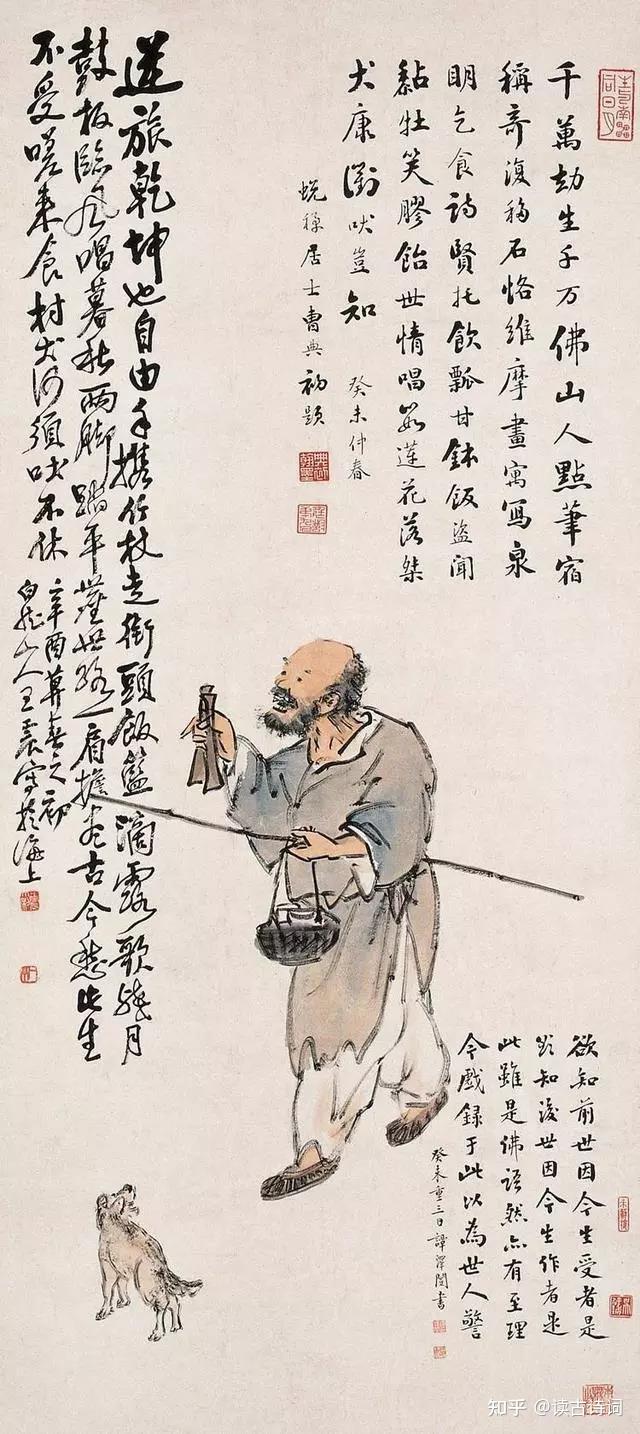 千萬劫生千万佛山人點筆宿
稱奇復移石恪維摩畫寓寫泉
明乞食詩賢托飲瓢甘鉢飯盜聞
黏牡笑膠飴世情唱蓮花落桀
犬康衢吠豈知 癸未仲春
居士曹典初題
逆旅乾坤也自由手攜竹杖走街頭飯籃滴露歌殘月
鼓板臨風唱暮秋兩腳踏平塵世路一肩擔盡古今愁此生
不受嗟來食村犬何須吠不休 辛酉暮春之初
白龍山人王震寫於海上
欲知前世因今生受者是
欲知後世因今生作者是
此雖是佛語然亦有至理
今戲錄于此以為世人警
癸未重三日譚澤闓書
知乎 @读古诗词